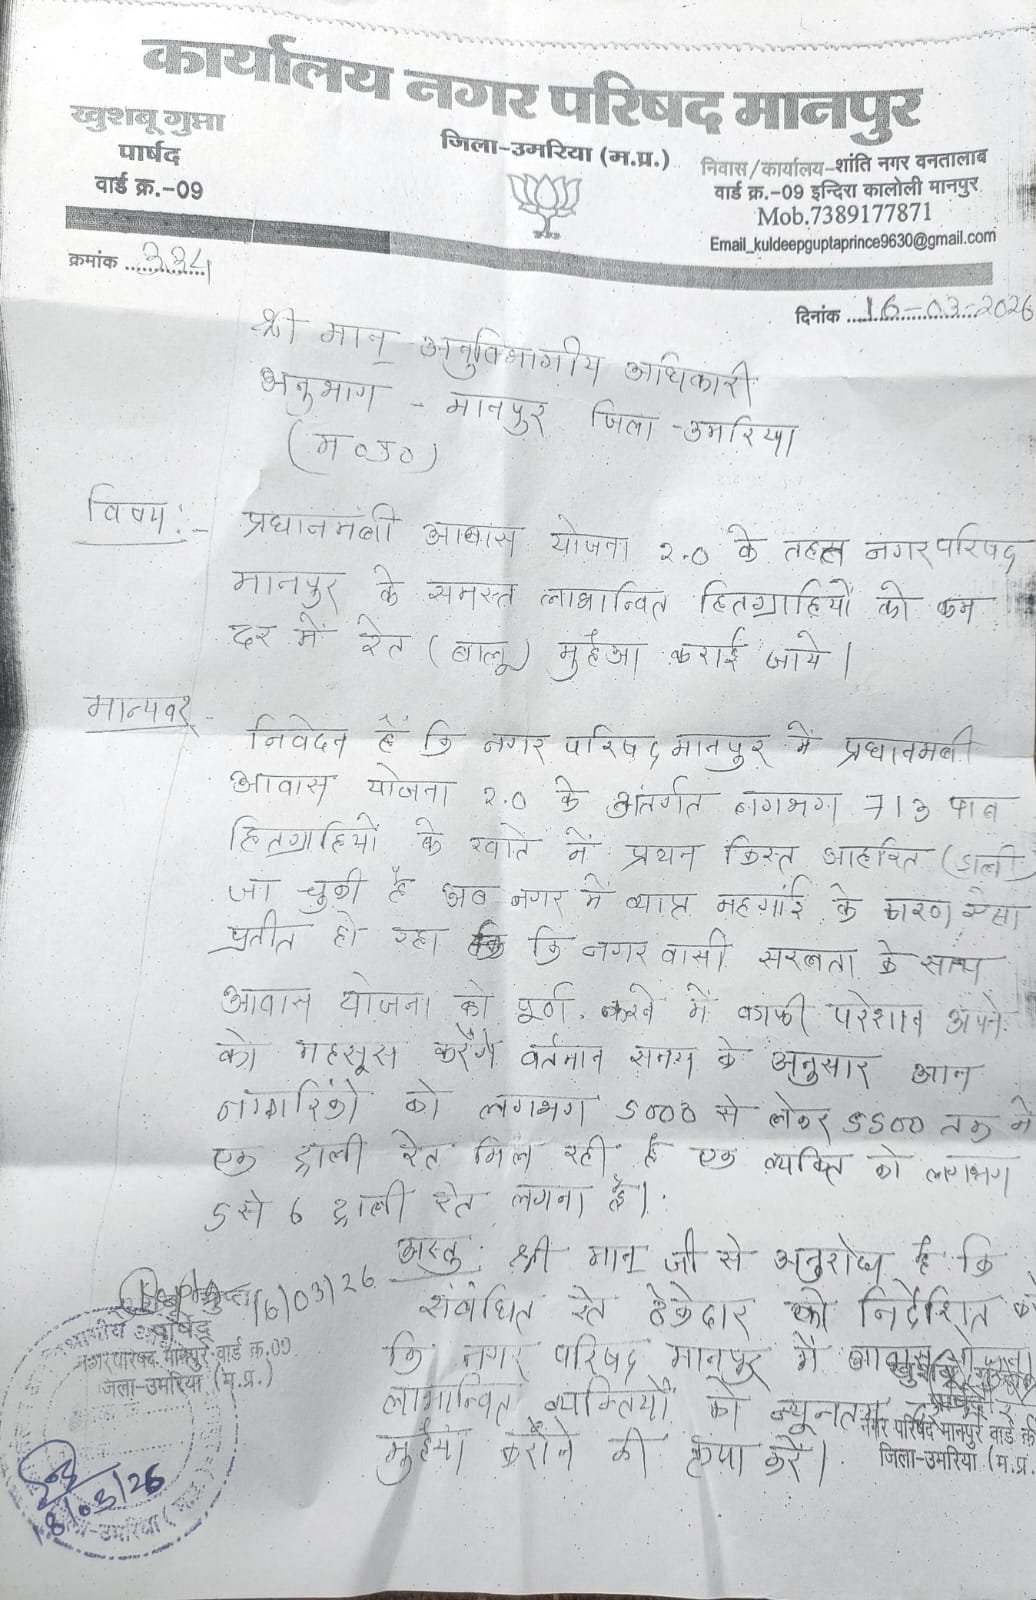 कार्यालय नगर परिषद मानपुर
खुशबू गुप्ता
पार्षद
वार्ड क्र.-09
जिला-उमरिया (म.प्र.)
निवास/कार्यालय-शांति नगर वनतालाब
वार्ड क्र.-09 इन्दिरा कालोली मानपुर
Mob.7389177871
Email_kuldeepguptaprince9630@gmail.com
क्रमांक 334
दिनांक 16-03-2026
श्री मान् अनुविभागीय अधिकारी
अनुभाग - मानपुर जिला - उमरिया
(म०प्र०)
विषय :- प्रधानमंत्री आवास योजना 2.0 के तहत नगर परिषद
मानपुर के समस्त लाभान्वित हितग्राहियों को कम
दर में रेत (बालू) मुहैआ कराई जाये।
मान्यवर -
निवेदन है कि नगर परिषद मानपुर में प्रधानमंत्री
आवास योजना 2.0 के अंतर्गत लगभग 713 पात्र
हितग्राहियों के खाते में प्रथम किस्त आहरित (डाली)
जा चुकी है अब नगर में व्याप्त महगाई के कारण ऐसा
प्रतीत हो रहा कि नगर वासी सरलता के साथ
आवास योजना को पूर्ण करने में काफी परेशान अपने
को महसूस करेंगे वर्तमान समय के अनुसार आम
नागरिकों को लगभग 5000 से लेकर 5500 तक में
एक ट्राली रेत मिल रही है एक व्यक्ति को लगभग
5 से 6 ट्राली रेत लगना है।
अस्तु : श्री मान् जी से अनुरोध है कि
संबंधित रेत ठेकेदार को निर्देशित करे
कि नगर परिषद मानपुर में आवास योजना
लाभान्वित व्यक्तियों को न्यूनतम
मुहैया कराने की कृपा करें।
16/03/26
पार्षद
नगर परिषद मानपुर वार्ड क्र.09
जिला-उमरिया (म.प्र.)
खुशबू गुप्ता
पार्षद
नगर परिषद मानपुर वार्ड क्र
जिला-उमरिया (म.प्र.
18/03/26